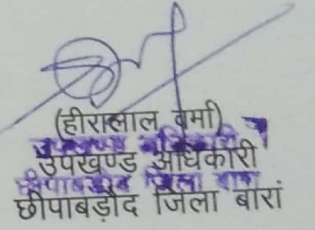 (हीरालाल वर्मा)
उपखण्ड अधिकारी
छीपाबड़ौद जिला बारां